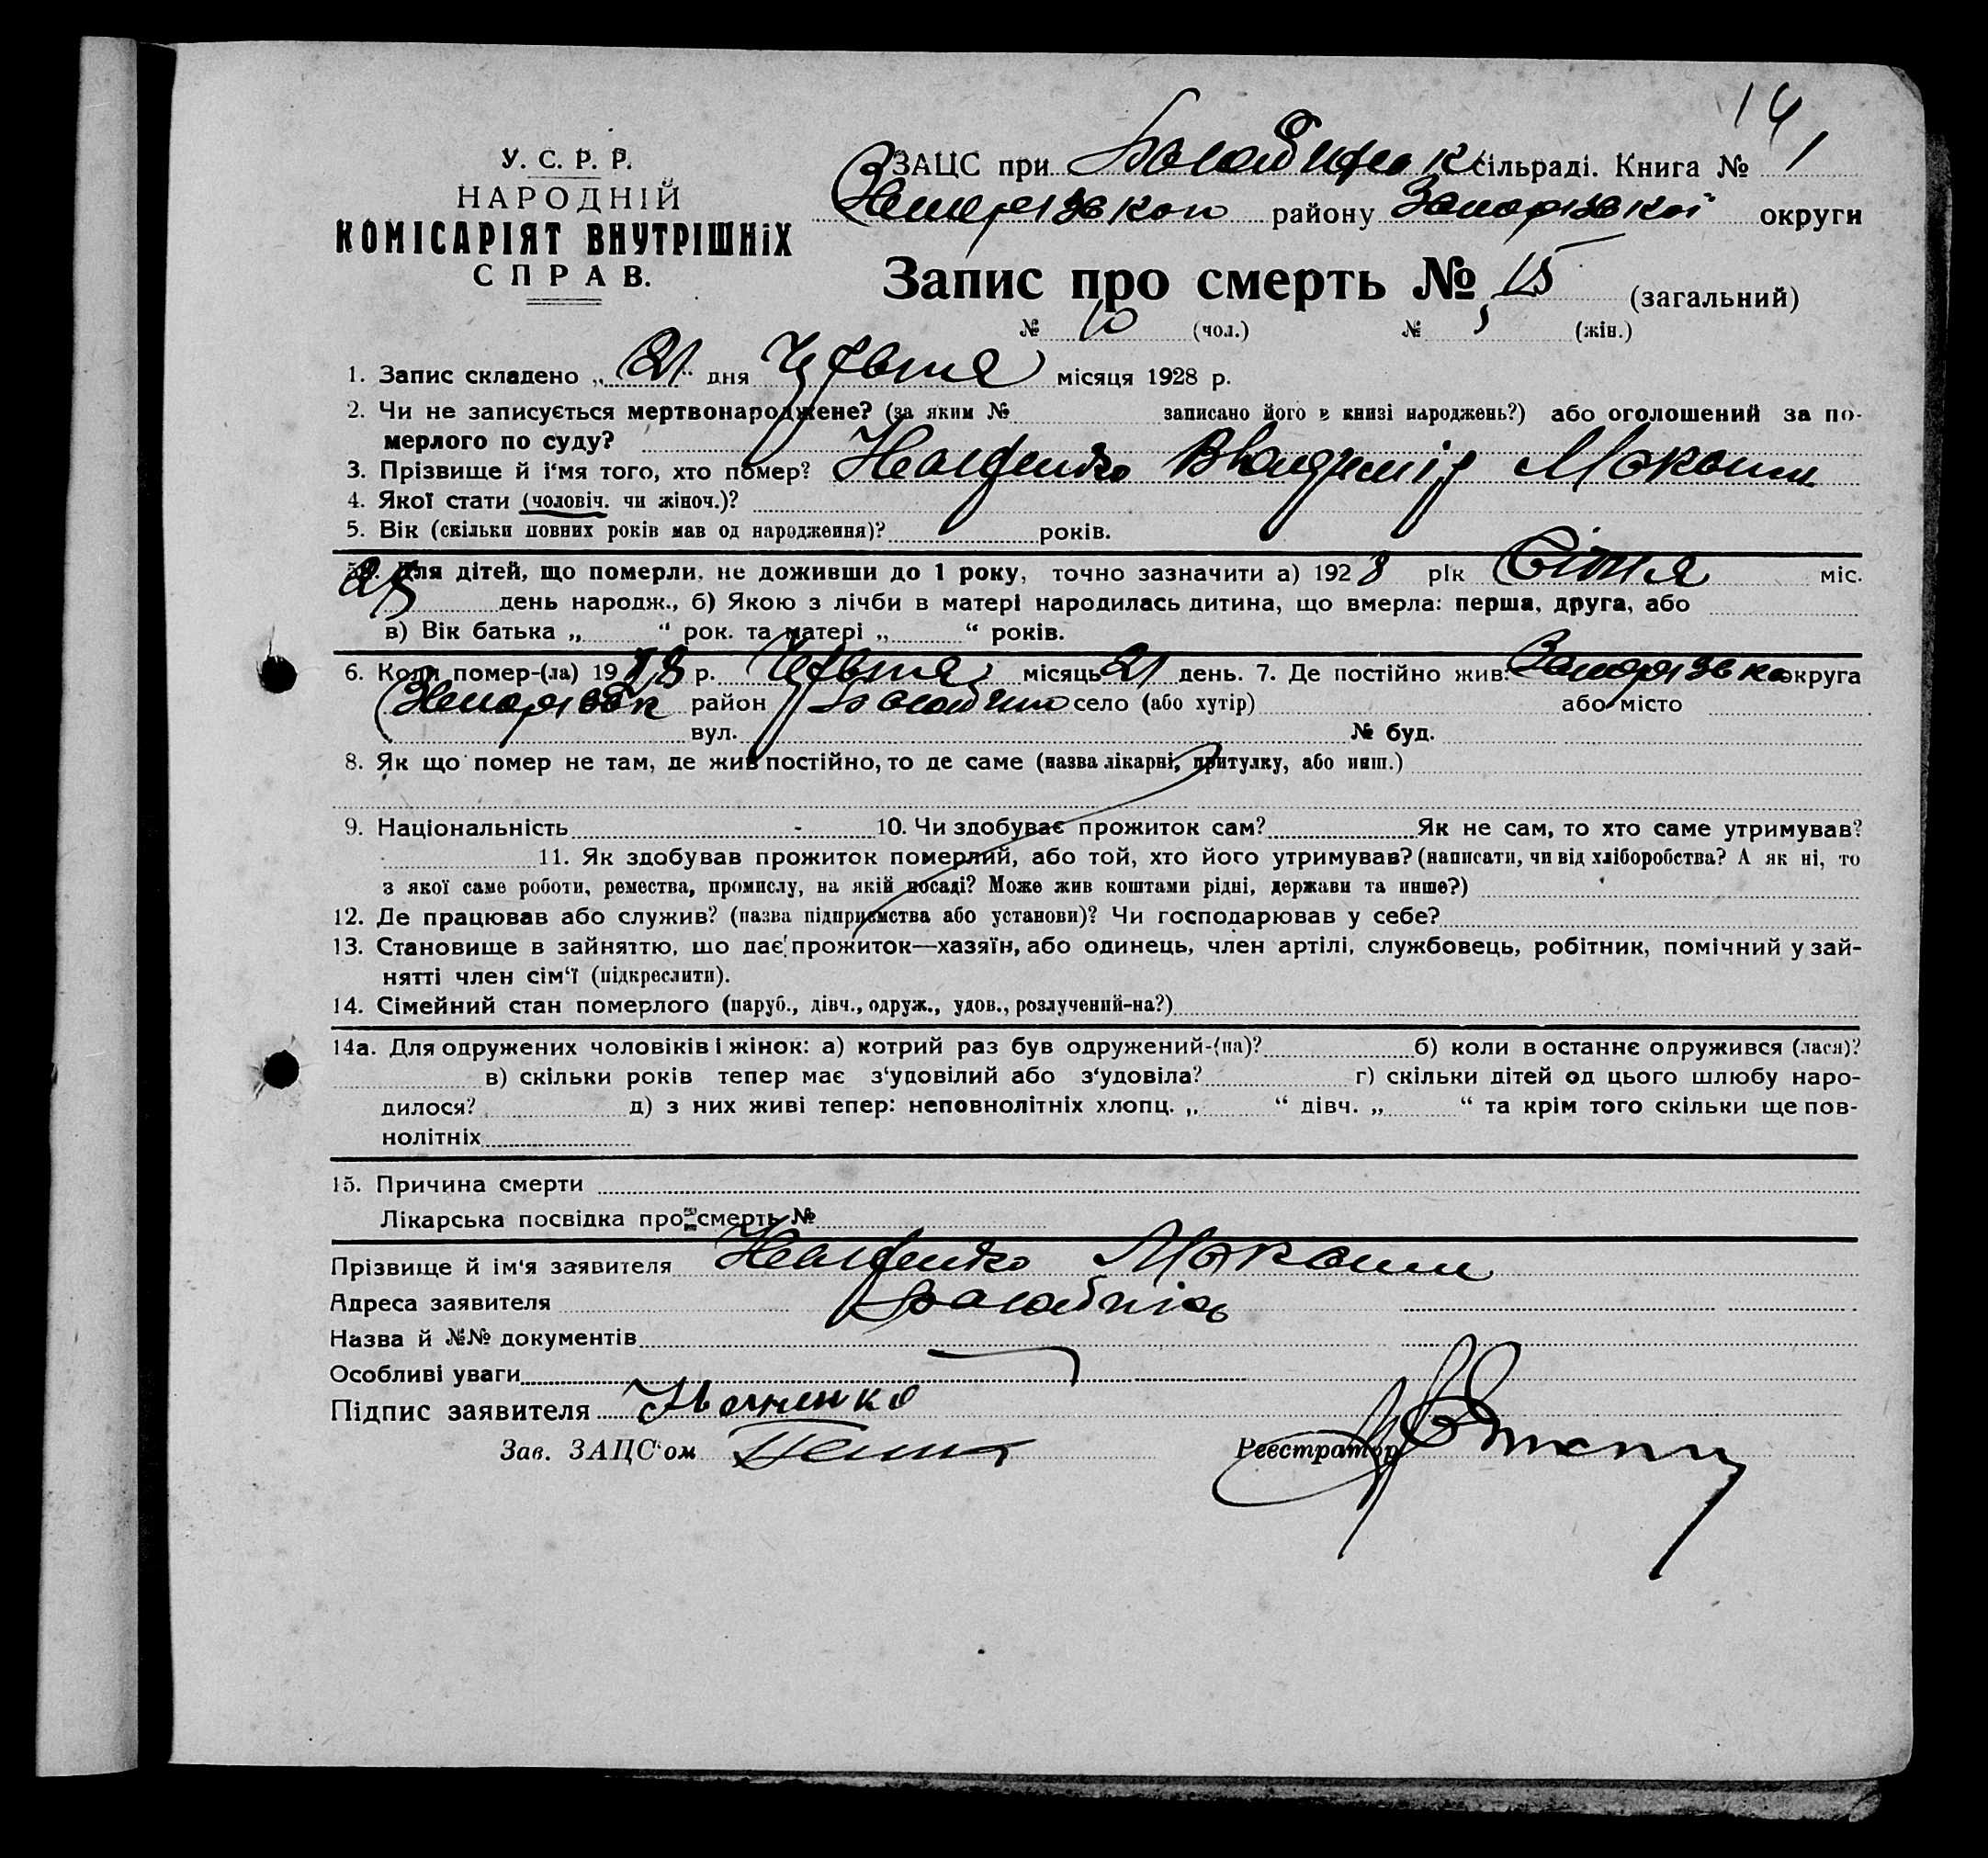 14
У. С. Р. Р.
НАРОДНІЙ
КОМІСАРІЯТ ВНУТРІШНІХ
СПРАВ.
ЗАЦС при сільраді. Книга № 1
району Запорізької округи
Запис про смерть № 15 (загальний)
№ 10 (чол.) № 5 (жін.)
1. Запис складено „ 21 " дня Червня місяця 1928 р.
2. Чи не записується мертвонароджене? (за яким № записано його в книзі народжень?) або оголошений за по-
мерлого по суду?
3. Прізвище й і'мя того, хто помер? Владимір
4. Якої стати (чоловіч. чи жіноч.)?
5. Вік (скільки повних років мав од народження)? років.
5а. Для дітей, що померли, не доживши до 1 року, точно зазначити а) 1928 рік Січня міс.
25 день народж., б) Якою з лічби в матері народилась дитина, що вмерла: перша, друга, або
в) Вік батька „ " рок. та матері „ " років.
6. Коли помер-(ла) 1928 р. Червня місяць 21 день. 7. Де постійно жив: округа
район село (або хутір) або місто
вул. № буд.
8. Як що помер не там, де жив постійно, то де саме (назва лікарні, притулку, або инш.)
9. Національність 10. Чи здобуває прожиток сам? Як не сам, то хто саме утримував?
11. Як здобував прожиток померлий, або той, хто його утримував? (написати, чи від хліборобства? А як ні, то
з якої саме роботи, ремества, промислу, на якій посаді? Може жив коштами рідні, держави та инше?)
12. Де працював або служив? (назва підприємства або установи)? Чи господарював у себе?
13. Становище в зайняттю, що дає прожиток—хазяїн, або одинець, член артілі, службовець, робітник, помічний у зай-
нятті член сім'ї (підкреслити).
14. Сімейний стан померлого (паруб., дівч., одруж., удов., розлучений-на?)
14а. Для одружених чоловіків і жінок: а) котрий раз був одружений-(на)? б) коли в останнє одружився (лася)?
в) скільки років тепер має з'удовілий або з'удовіла? г) скільки дітей од цього шлюбу наро-
дилося? д) з них живі тепер: неповнолітніх хлопц. „ " дівч. „ " та крім того скільки ще пов-
нолітніх
15. Причина смерти
Лікарська посвідка про смерть №
Прізвище й ім'я заявителя
Адреса заявителя
Назва й №№ документів
Особливі уваги
Підпис заявителя
Зав. ЗАЦС'ом Реєстратор